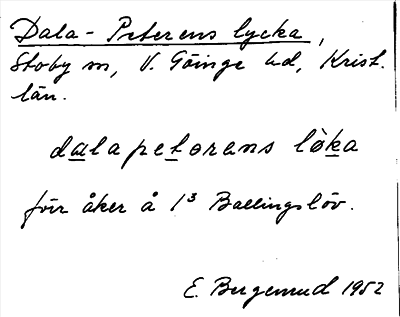 Dala-Peterens lycka,
Stoby sn, V. Göinge hd, Krist.
län.
dalapetorens lòka
förr åker å 1³ Ballingslöv.
E. Bergerud 1952